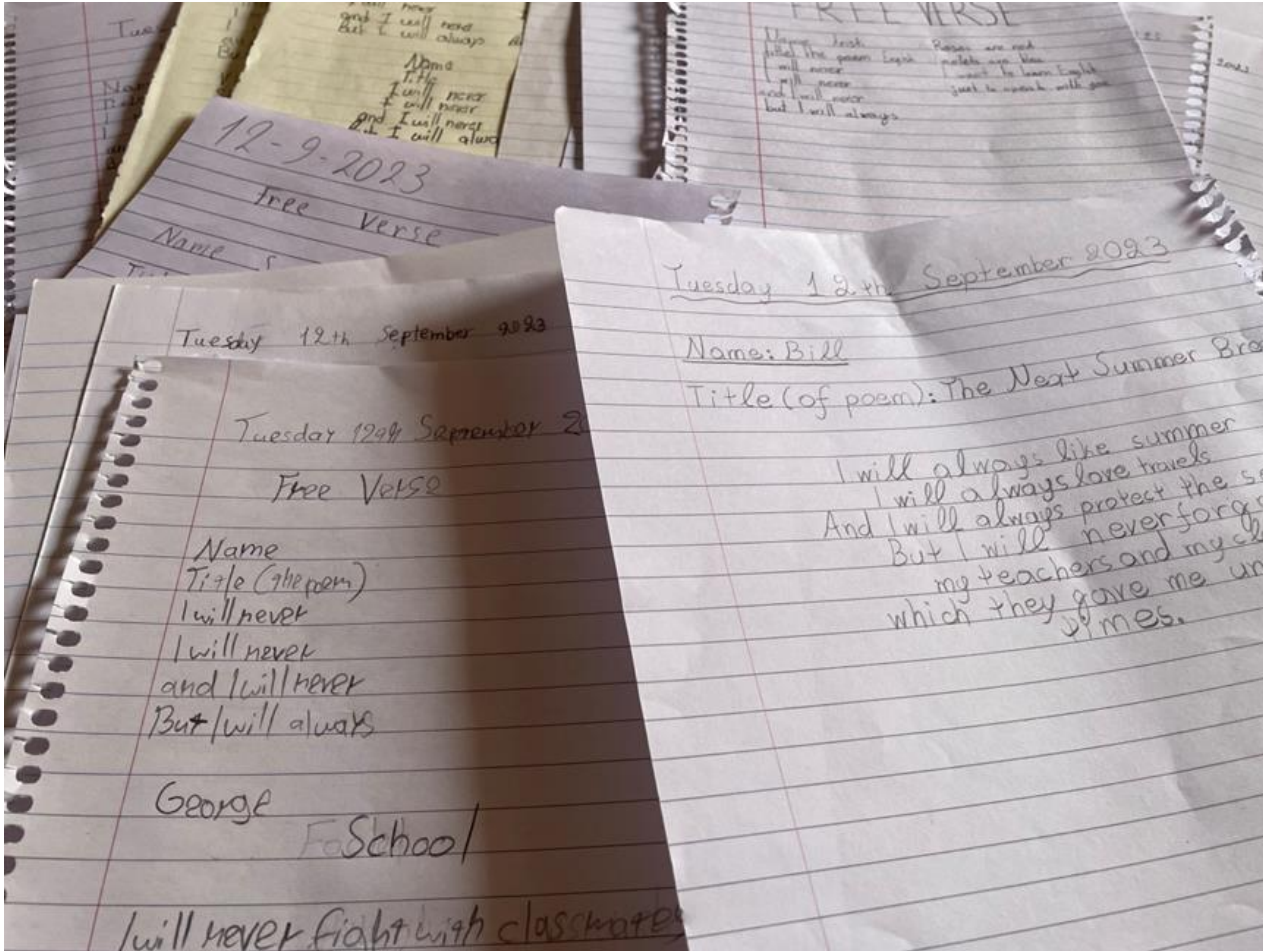 Tue
never
and I will never
But I will always
Name
Title
I will never
I will never
and I will never
But I will alwa
FREE VERSE
Name
Roses are red
title: The poem English
I will never
I want to learn English
I will never
just to speak with you
and I will never
but I will always
2023
12-9-2023
Free Verse
Name
Tuesday 12th September 2023
Tuesday 12th September 2
Free Verse
Name
Title (the poem)
I will never
I will never
and I will never
But I will always
George
School
I will never fight with classmates
Tuesday 12th September 2023
Name: Bill
Title (of poem): The Next Summer Brea
I will always like summer
I will always love travels
And I will always protect the se
But I will never forg
my teachers and my cl
which they gave me un
times.